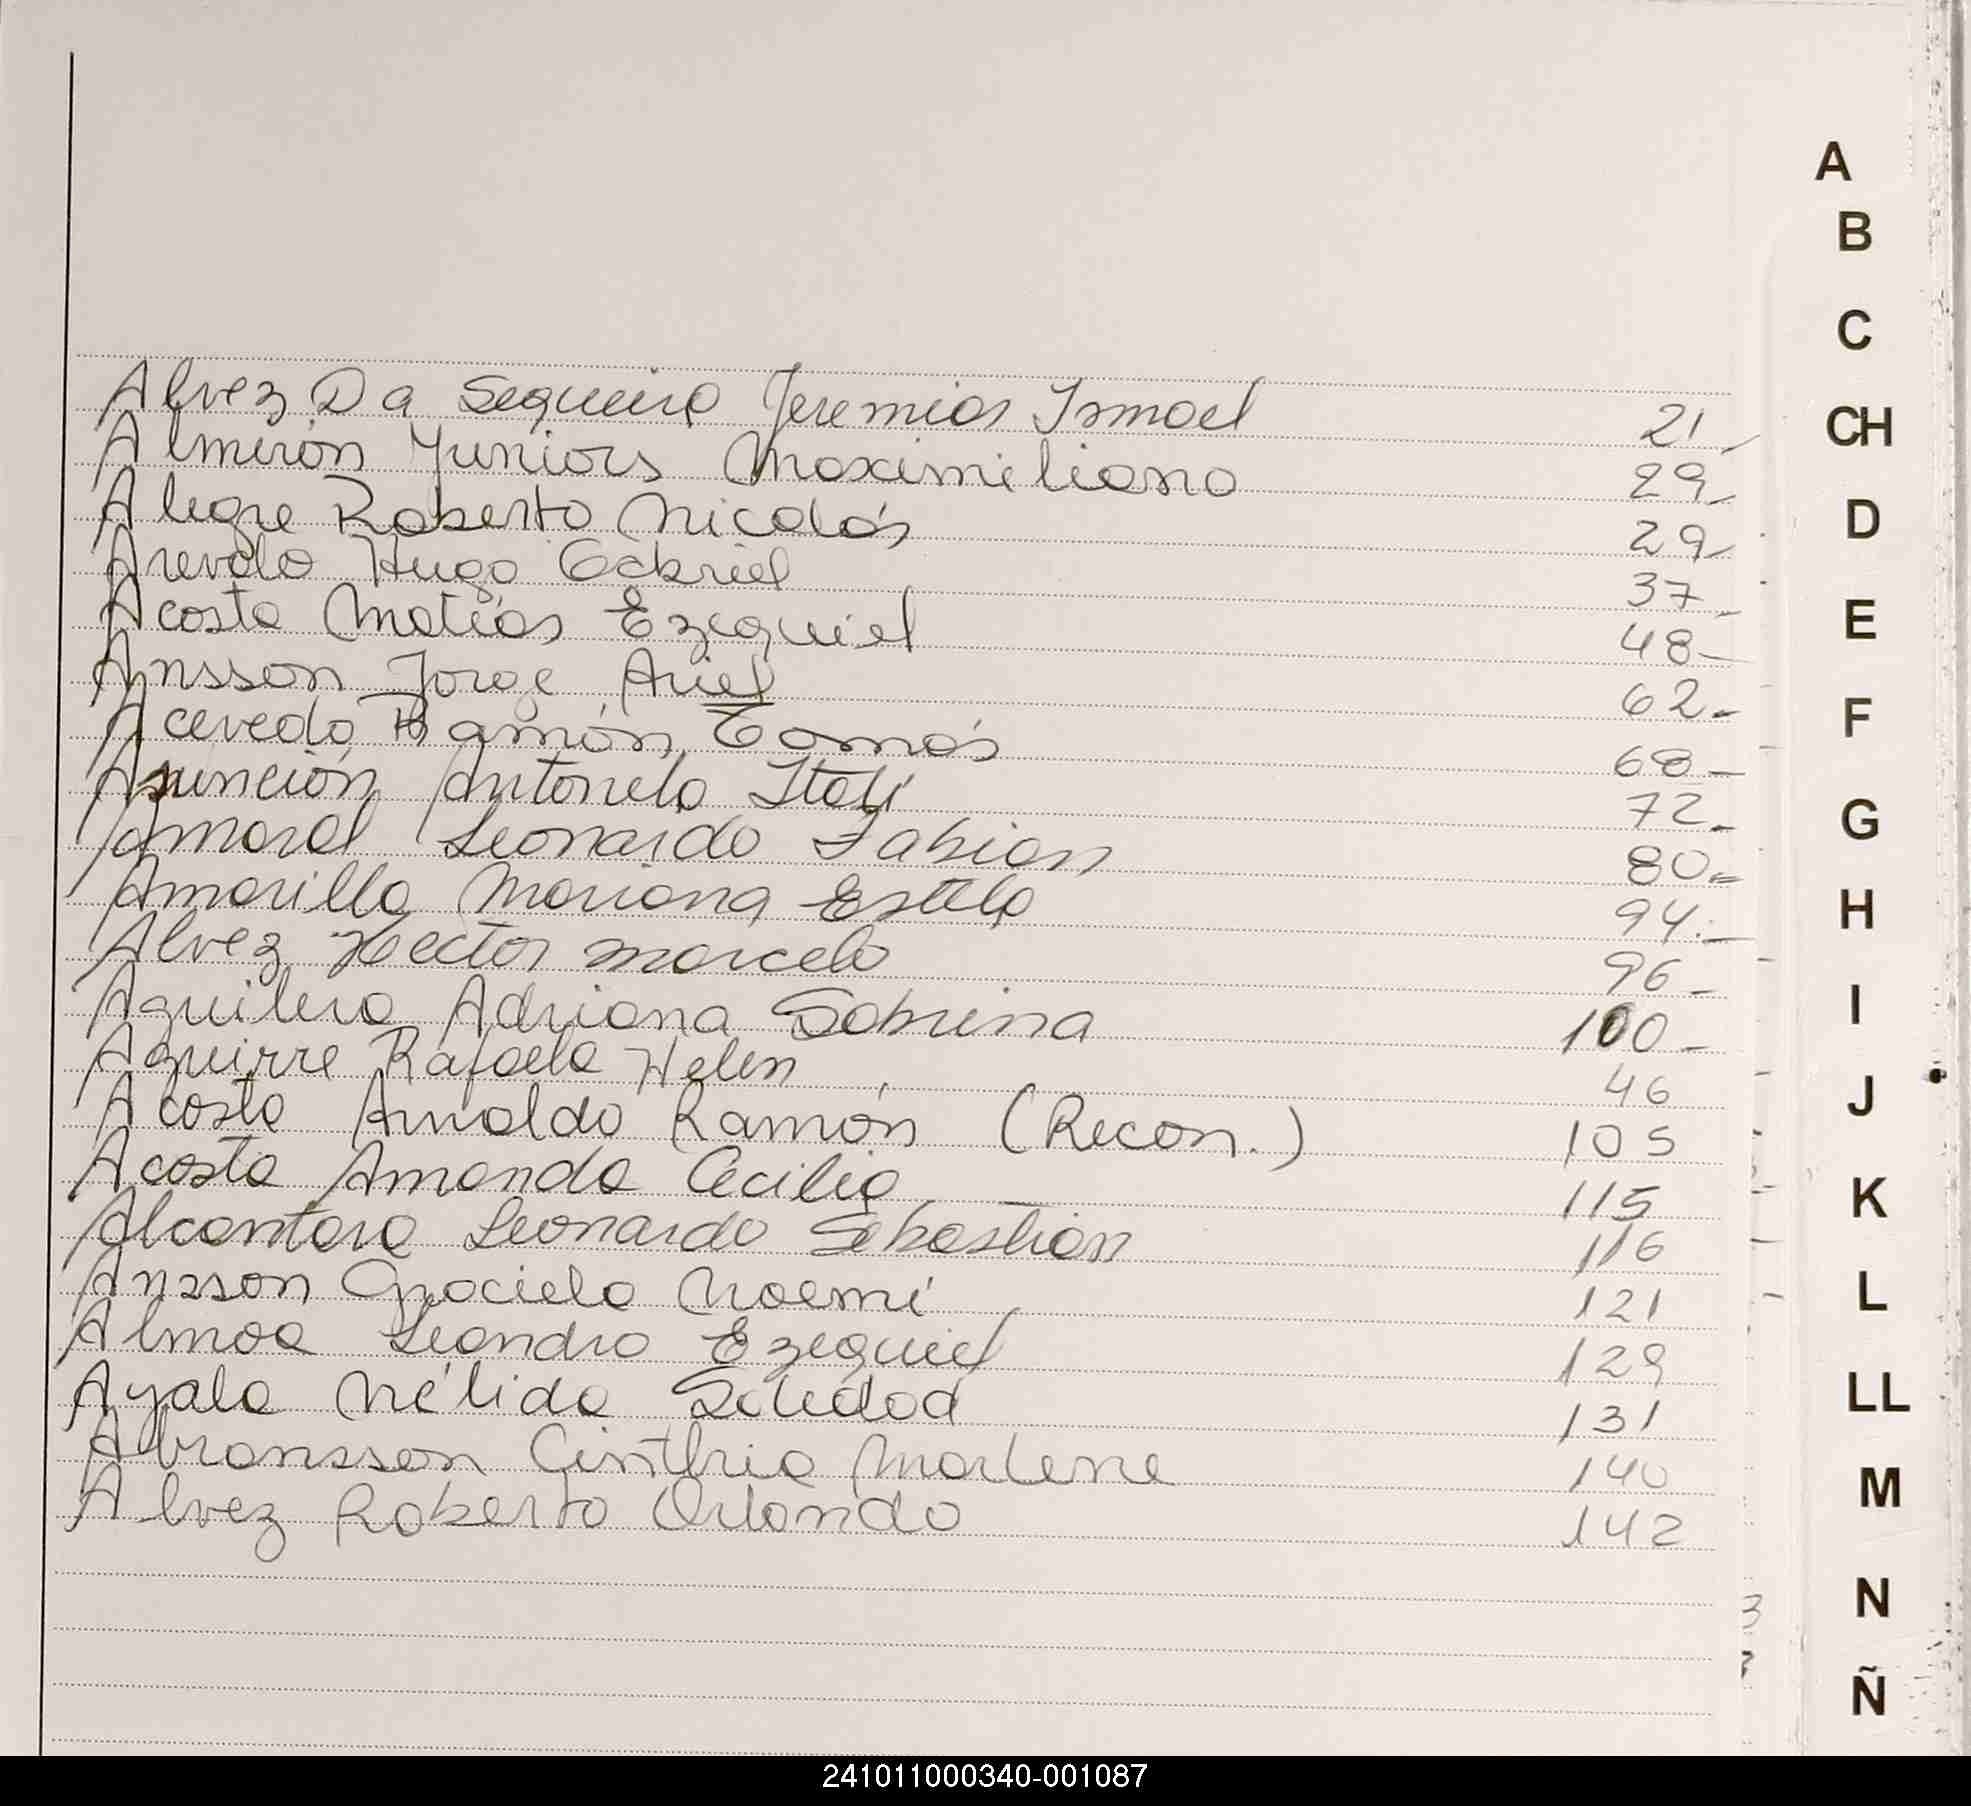 Alvez Da Sequeira Jeremias Ismael 21
Almirón Yuniors Maximiliano 29
Alegre Roberto Nicolás 29
Arevalo Hugo Gabriel 37
Acosta Matías Ezequiel 48
Ansson Jorge Ariel 62
Acevedo Ramón Tomás 68
Asunción Antonela Itatí 72
Amaral Leonardo Fabian 80
Amarilla Mariana Estela 94
Alvez Hector Marcelo 96
Aguilera Adriana Sabrina 100
Aguirre Rafaela Helen 46
Acosta Arnaldo Ramón (Recon.) 105
Acosta Amanda Cecilia 115
Alcantara Leonardo Sebastian 116
Ansson Graciela Noemí 121
Almoa Leandro Ezequiel 129
Ayala Nélida Soledad 131
Abransson Cinthia Marlene 140
Alvez Roberto Orlando 142
A
B
C
CH
D
E
F
G
H
I
J
K
L
LL
M
N
Ñ
241011000340-001087